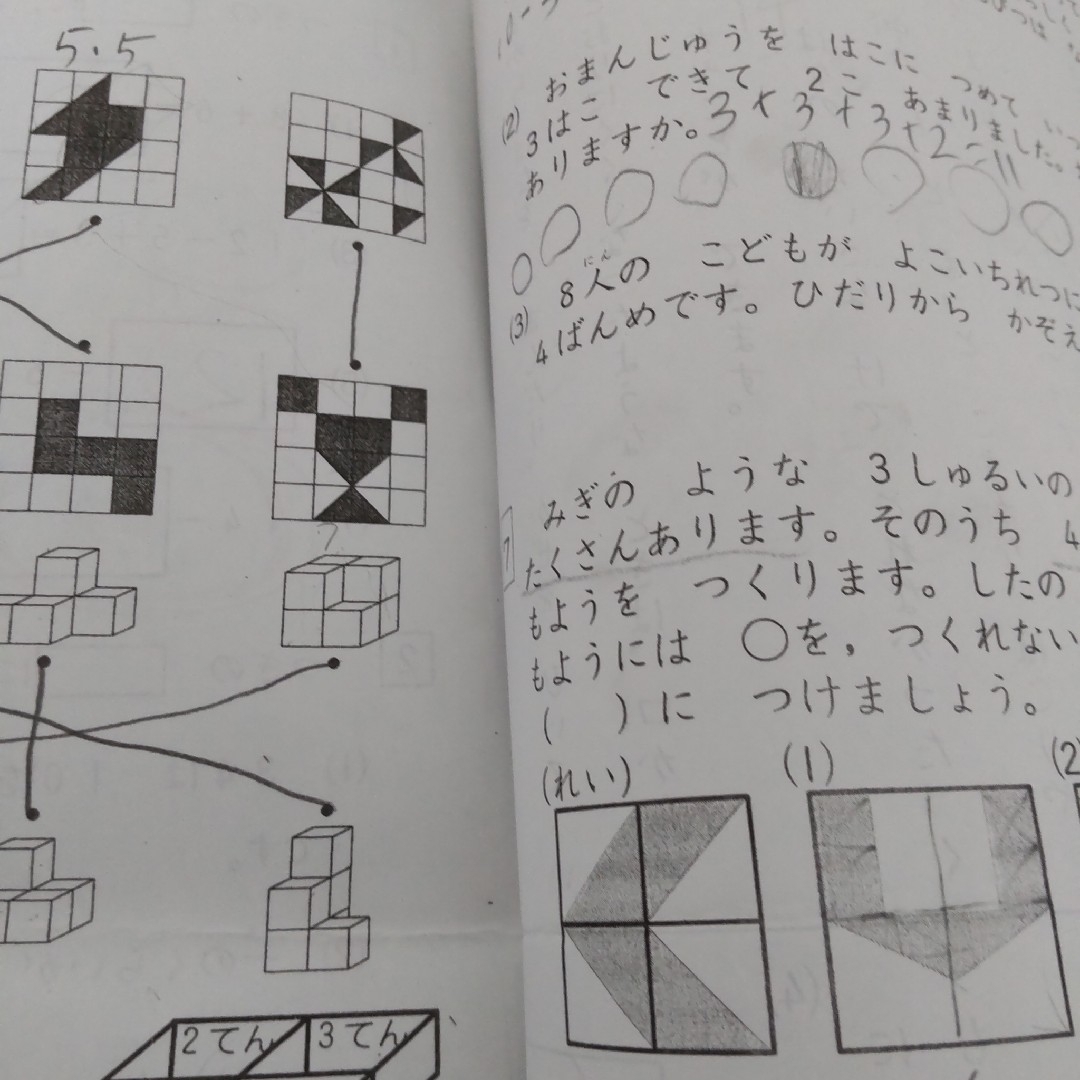 5.5
2てん 3てん
(2) おまんじゅうを はこに つめて いっ
3はこ できて 2こ あまりました。
ありますか。3+3+3+2=11
(3) 8人の こどもが よこいちれつに
にん
4ばんめです。ひだりから かぞえ
みぎの ような 3しゅるいの
たくさんあります。そのうち 4
もようを つくります。したの
もようには ○を，つくれない
( )に つけましょう。
(れい) (1) (2)